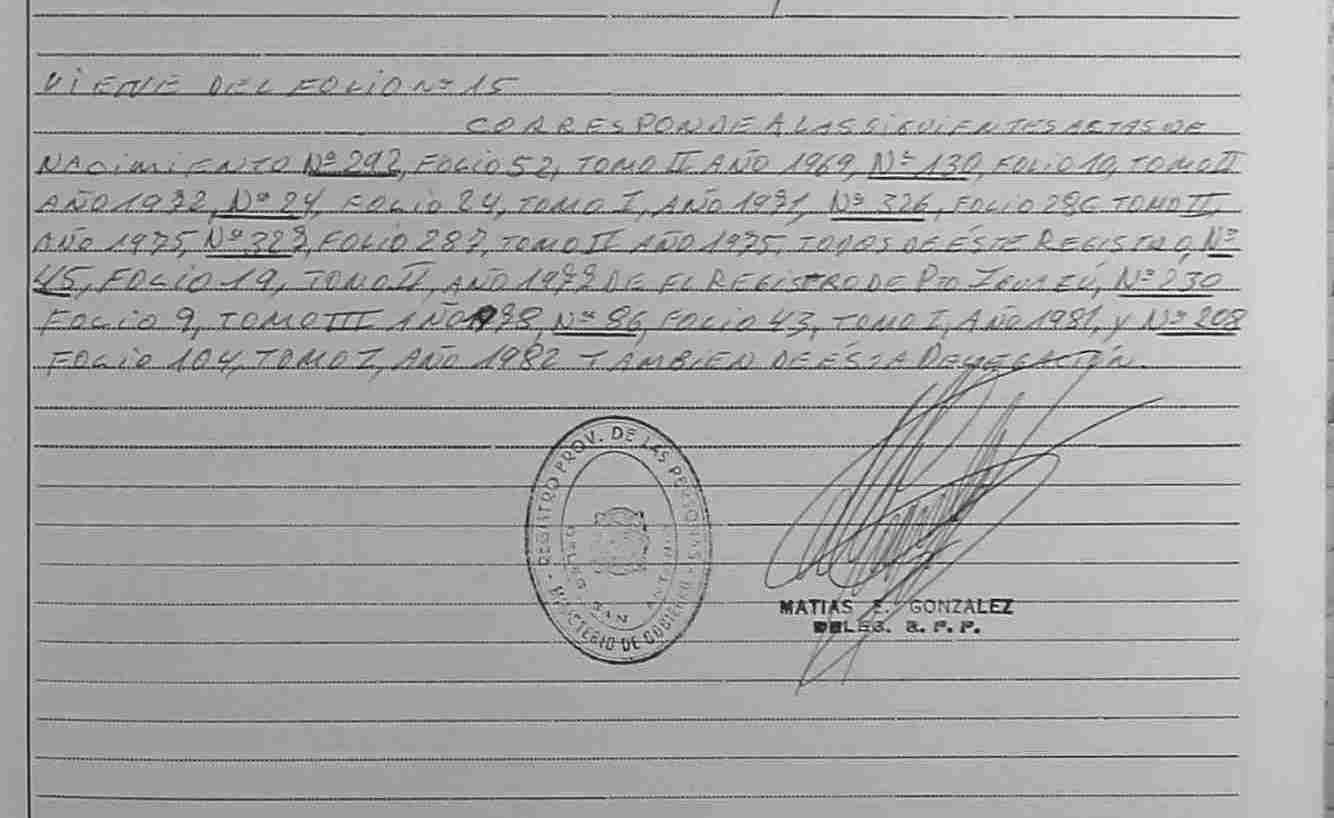 VIENE DEL FOLIO Nº 15
CORRESPONDE A LAS SIGUIENTES ACTAS DE
NACIMIENTO Nº 292, FOLIO 52, TOMO II AÑO 1969, Nº 130, FOLIO 10, TOMO II
AÑO 1972, Nº 24, FOLIO 24, TOMO I, AÑO 1971, Nº 326, FOLIO 286 TOMO II,
AÑO 1975, Nº 327, FOLIO 287, TOMO II AÑO 1975, TODOS DE ÉSTE REGISTRO, Nº
45, FOLIO 19, TOMO II, AÑO 1977 DE EL REGISTRO DE PTO IGUAZÚ, Nº 230
FOLIO 9, TOMO III AÑO 1978, Nº 86, FOLIO 43, TOMO I, AÑO 1981, y Nº 208
FOLIO 104, TOMO I, AÑO 1982 TAMBIEN DE ÉSTA DELEGACIÓN.
REGISTRO PROV. DE LAS PERSONAS
MINISTERIO DE GOBIERNO
SAN ANTONIO
MATIAS E. GONZALEZ
DELEG. R. P. P.